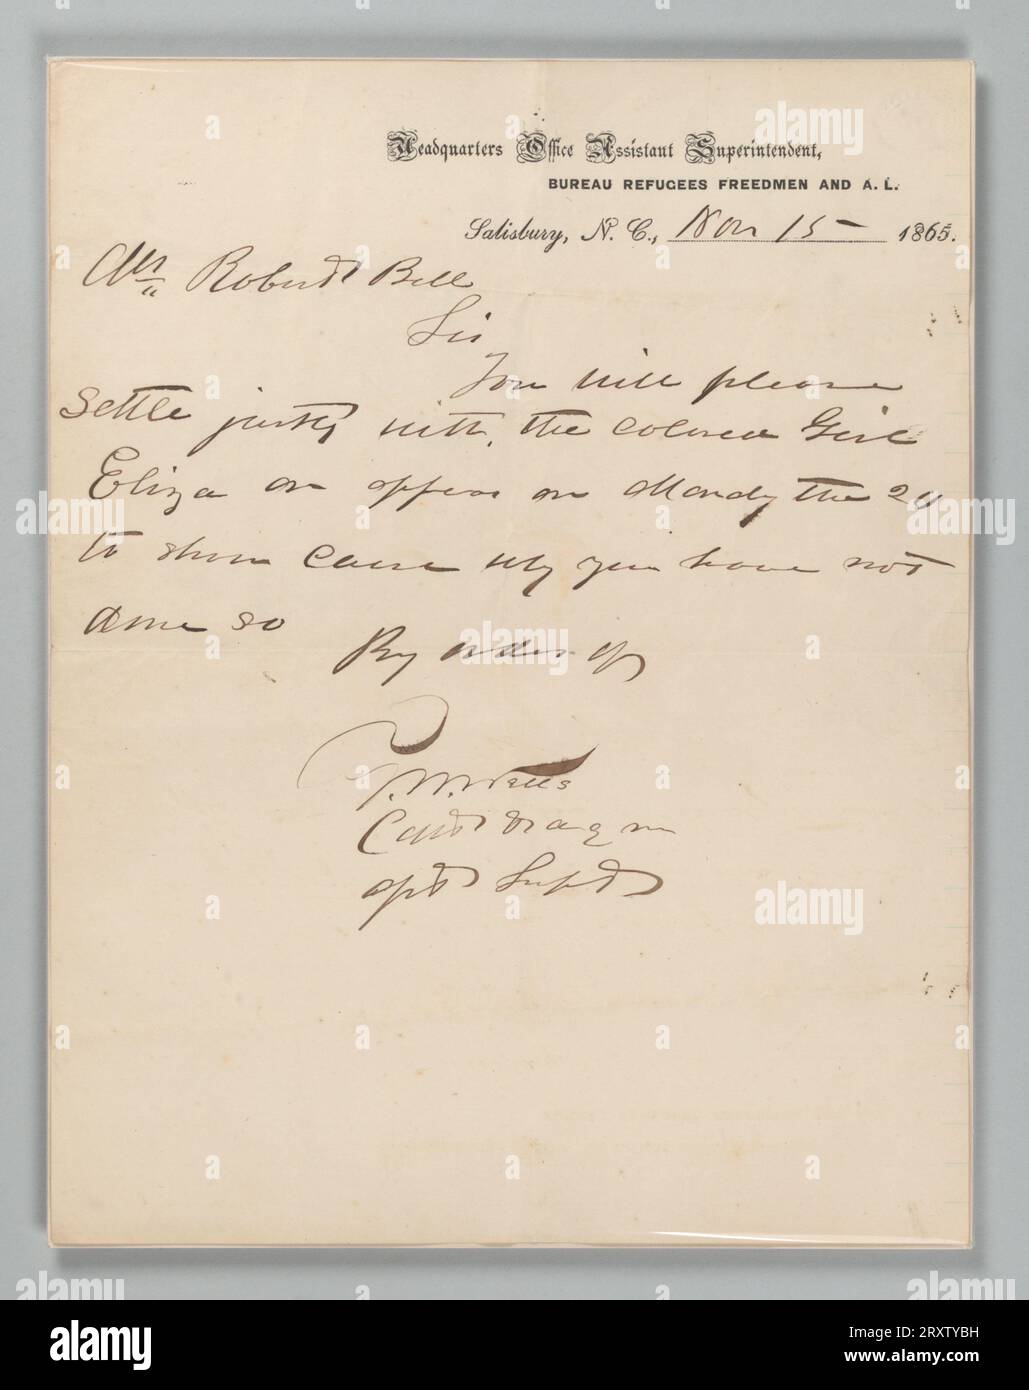 Headquarters Office Assistant Superintendent,
BUREAU REFUGEES FREEDMEN AND A. L.
Salisbury, N. C., Nov 15 1865.
Mr Robert Bell
Sir
You will please
Settle justly with the Colored Girl
Eliza or appear on Monday the 20
to show Cause why you have not
done so
By order of
Capt
Supt
alamy
Image ID: 2RXTYBH
www.alamy.com